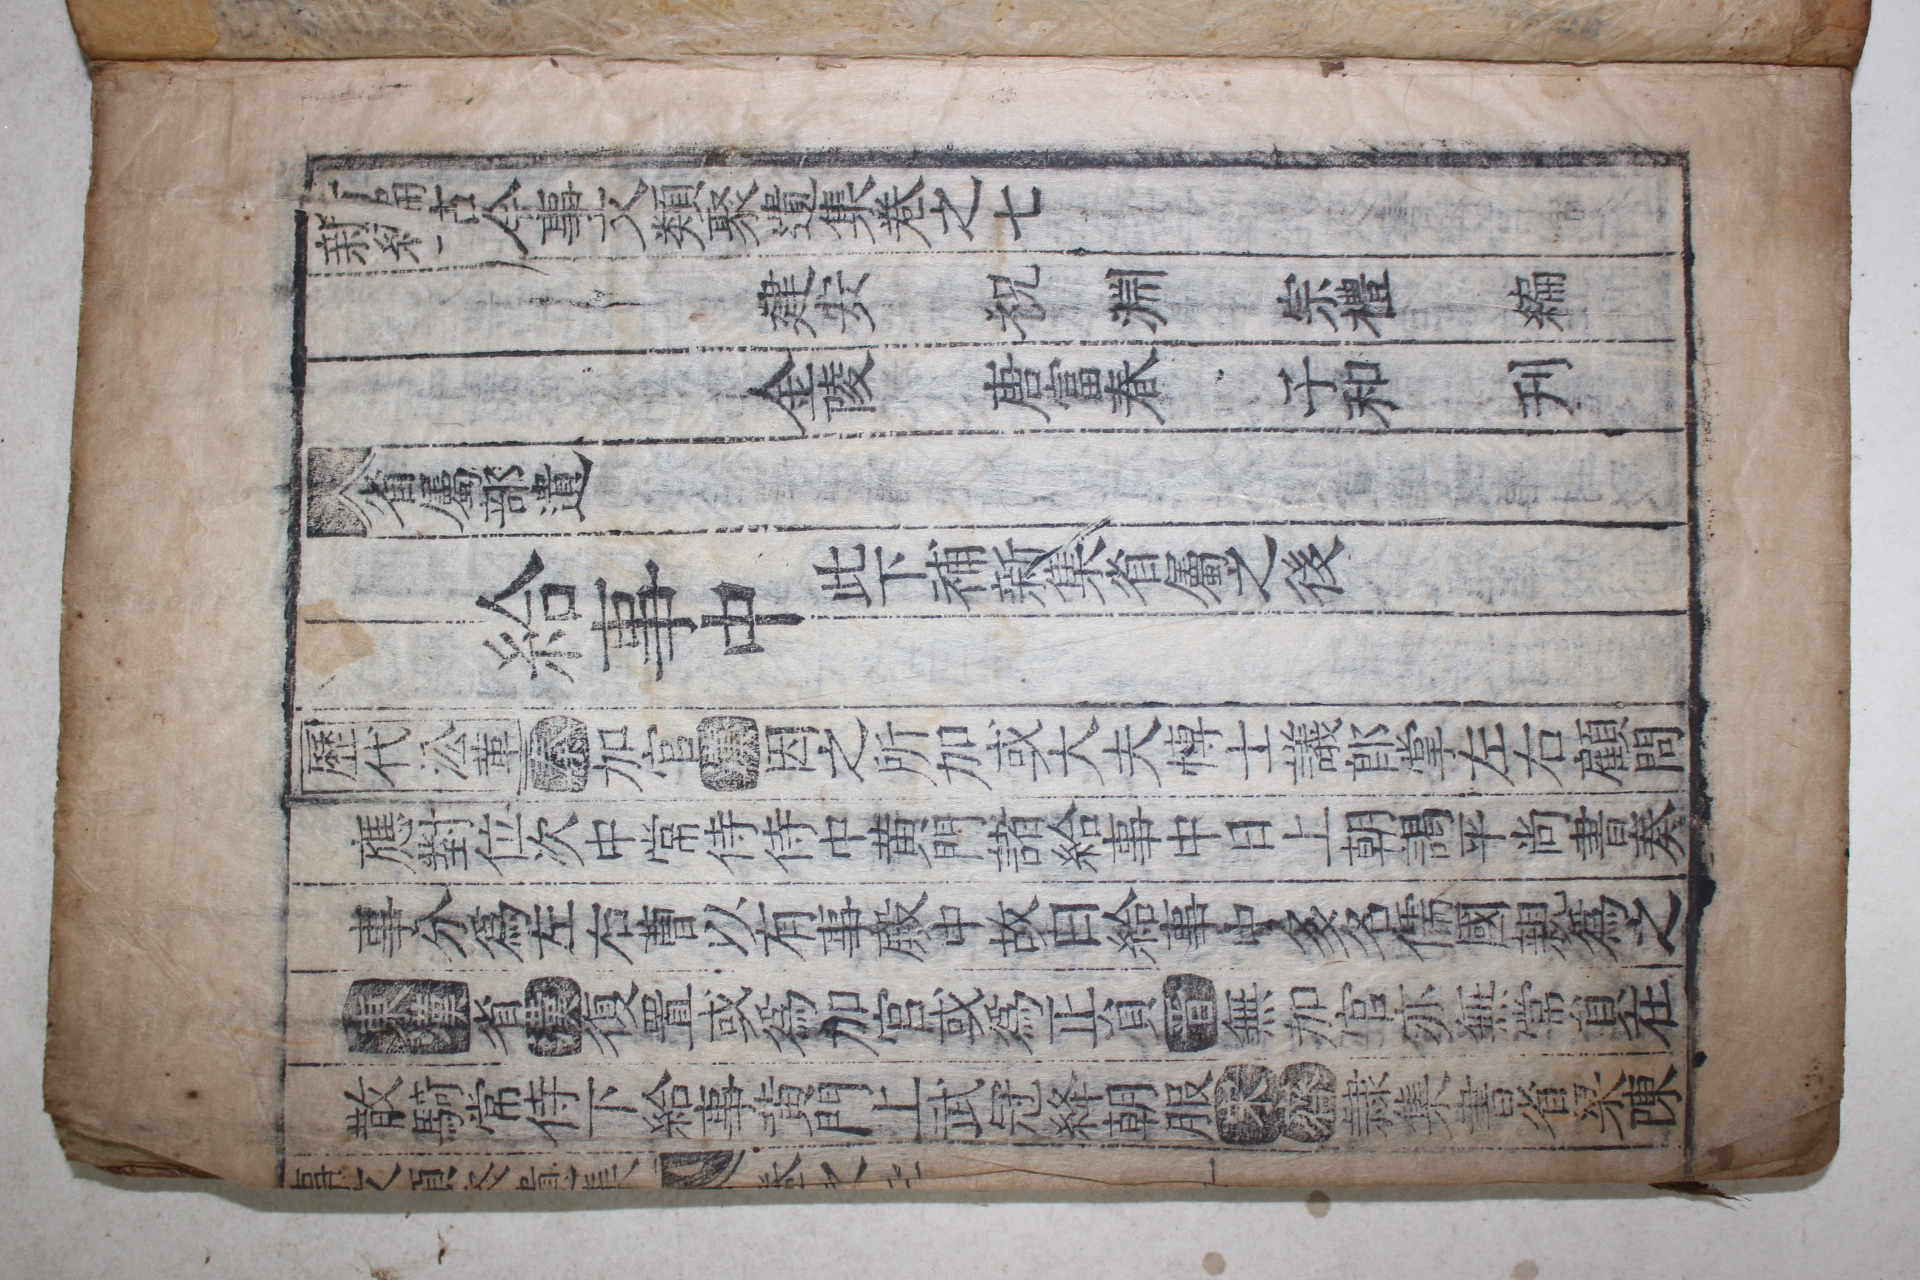 新編古今事文類聚遺集卷之七
建安 祝 淵 宗禮 編
金陵 唐富春 子和 刋
省屬部遺
給事中
此下補新集省屬之後
歷代沿革秦加官漢因之所加或大夫博士議郎掌左右顧問
應對位次中常侍侍中黃門諸給事中日上朝謁平尚書奏
事分爲左右曹以有事殿中故曰給事中多名儒國親爲之
東漢省漢復置或爲加官或爲正貟晋無加官亦無常貟在
散騎常侍下給事黃門上武冠絳朝服宋齊隷集書省梁陳
事文類聚遺集 卷之七 一